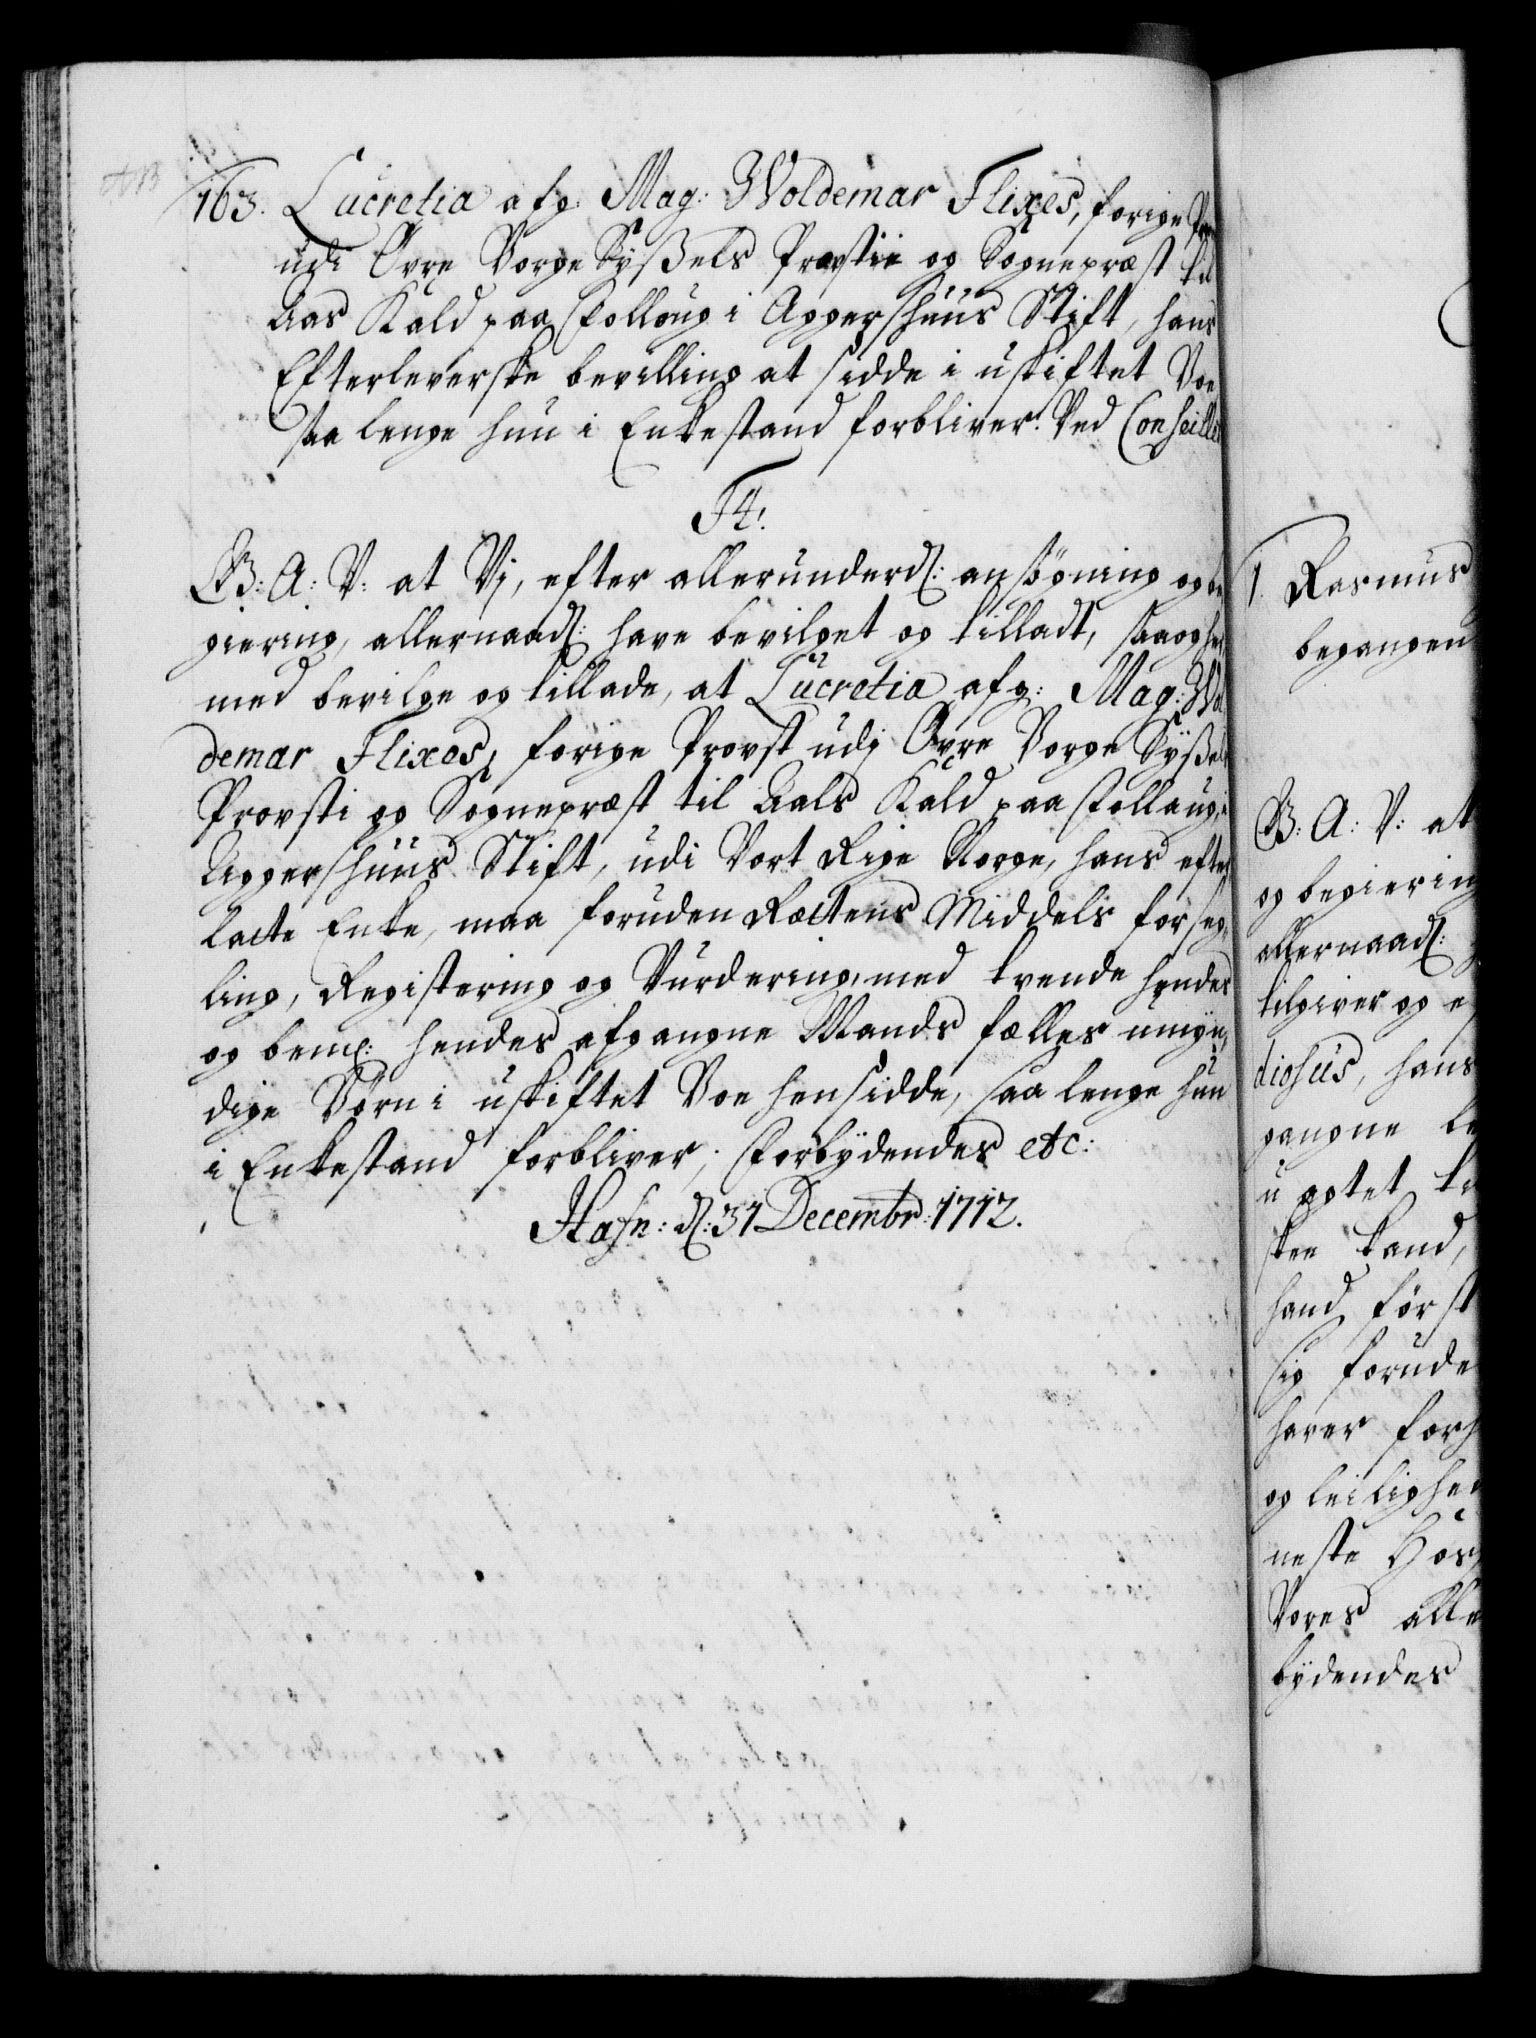 163. Lucretia afg: Mag: Woldemar Flixes, forige
udi Øvre Borge Syßels Provstie og Sognepræst til
Aas Kald paa Folloug i Aggershuus Stift, hans
Efterleverske bevilling at sidde i uskiftet Boe
saa lenge hun i Enkestand forbliver. Ved Conseillet
F4!
G: A: V: at Vj, efter allerunderd: ansøgning og be
giering, allernaad: have bevilget og tilladt, saa og her
med bevilge og tillade, at Lucretia afg: Mag: Wol
demar Flixes, forige Provst udj Øvre Borge Syßels
Provsti og Sognepræst til Aals Kald paa Follaug i
Aggershuus Stift, udi Vort Rige Norge, hans efter
lacte Enke, maa foruden Rættens Middels forseg,
ling, Registering og Vurdering, med trende hendes
og bem: hendes afgangne Mands fælles umyn,
dige Børn i uskiftet Boe hensidde, saa lenge hun
i Enkestand forbliver; Forbydendes etc:
Hafn: d: 31 Decembr: 1712.
1. Rasmus
begangen
G: A: V: at
og begiering
allernaad:
tilgiver og e
diosus, hans
gangne le
u agtet
skee kand,
hand først
sig forude
haver forh
og leilighed
neste
Vores alle
bydendes